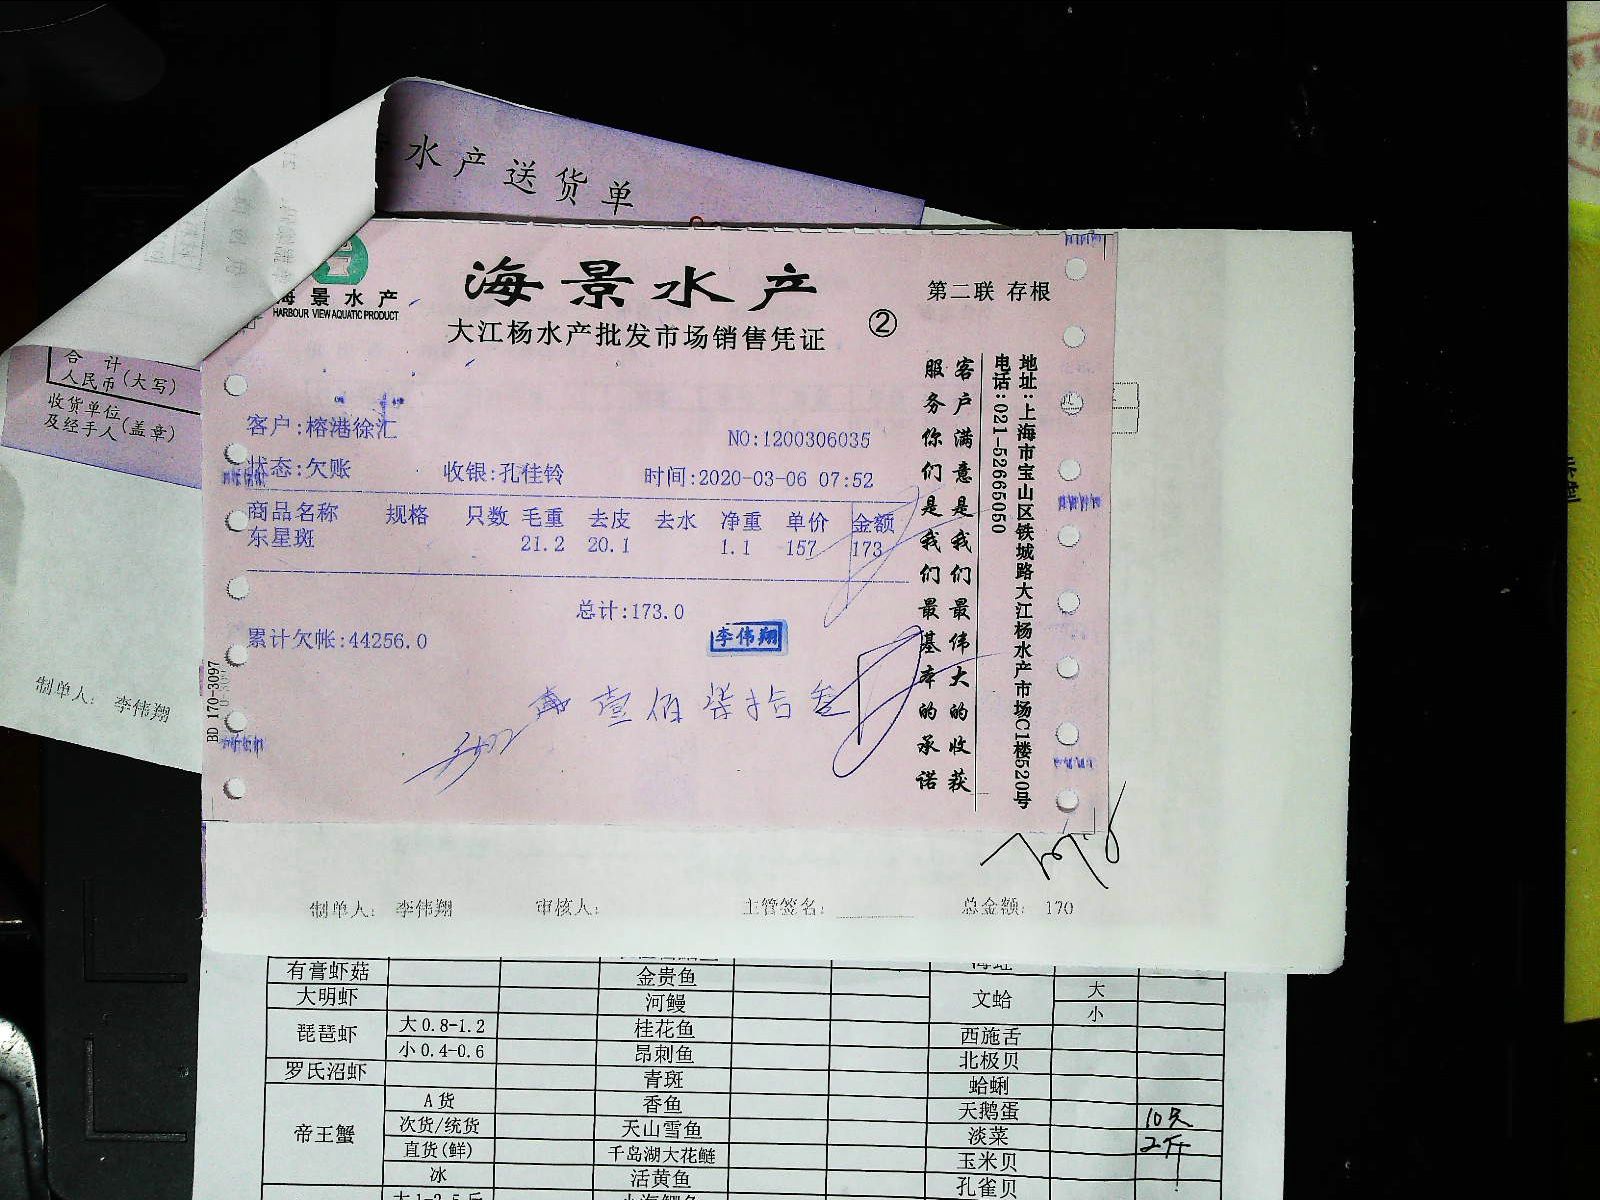 水产送货单
合 计
人民币(大写)
收货单位
及经手人(盖章)
制单人: 李伟翔
海景水产
HARBOUR VIEW AQUATIC PRODUCT
海景水产
大江杨水产批发市场销售凭证
②
第二联 存根
客户:榕港徐汇
NO:1200306035
状态:欠账 收银:孔佳铃 时间:2020-03-06 07:52
商品名称 规格 只数 毛重 去皮 去水 净重 单价 金额
东星斑 21.2 20.1 1.1 157 173
总计:173.0
累计欠帐:44256.0
李伟翔
壹佰柒拾叁
BD 170-3097
地址:上海市宝山区铁城路大江杨水产市场C1楼520号
电话:021-52665050
客户满意是我们最伟大的收获
服务你们是我们最基本的承诺
制单人: 李伟翔 审核人: 主管签名: 总金额: 170
有膏虾菇 金贵鱼
大明虾 河鳗 文蛤 大
小
琵琶虾 大0.8-1.2 桂花鱼 西施舌
小0.4-0.6 昂刺鱼 北极贝
罗氏沼虾 青斑 蛤蜊
帝王蟹 A货 香鱼 天鹅蛋 10只
次货/统货 天山雪鱼 淡菜 2斤
直货(鲜) 千岛湖大花鲢 玉米贝
冰 活黄鱼 孔雀贝